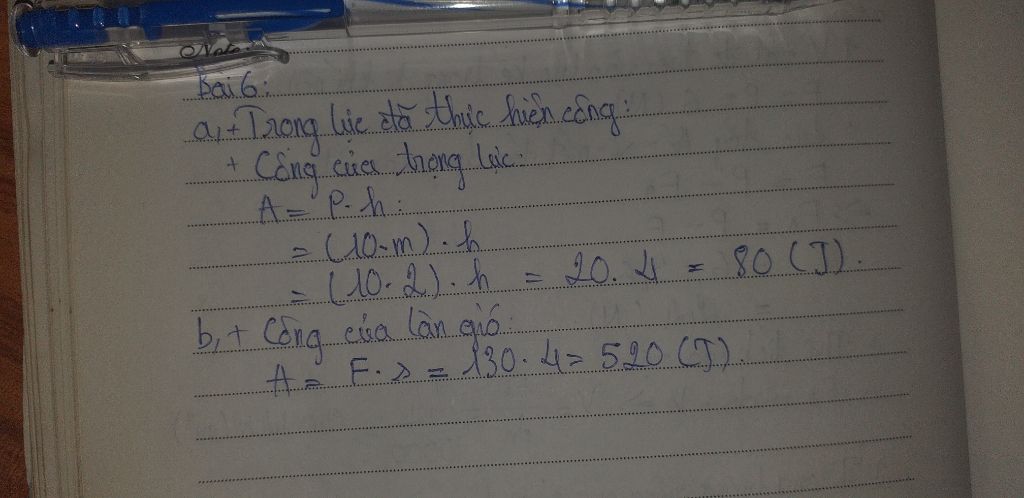 Note:
Bài 6:
a, + Trọng lực đã thực hiện công:
+ Công của trọng lực:
A = P. h:
= (10. m) . h
= (10. 2) . h = 20. 4 = 80 (J).
b, + Công của làn gió:
A = F. s = 130. 4 = 520 (J).